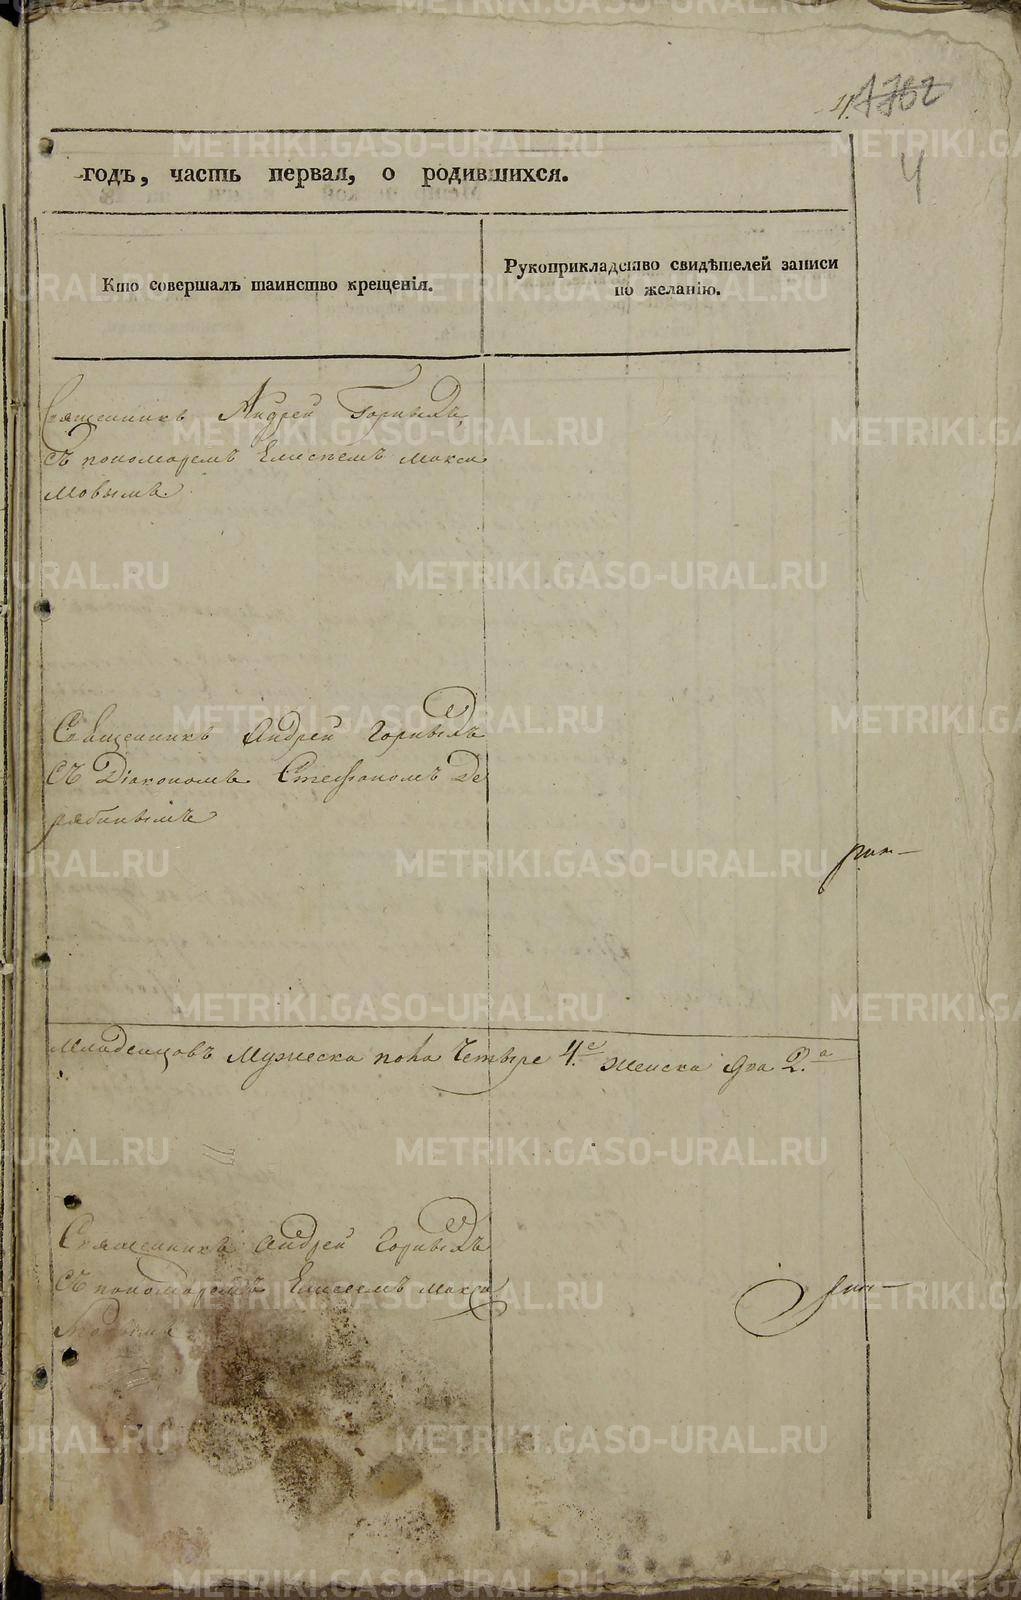 4
годъ, часть первая, о родившихся.
Кто совершалъ таинство крещенія.
Рукоприкладство свидѣтелей записи
по желанію.
Священникъ Андрей
съ пономаремъ Елисеемъ Макси
мовымъ.
Священникъ Андрей
съ Діакономъ Стефаномъ Де
рябинымъ
Младенцовъ Мужеска пола Четыре 4.е Женска два 2.а
Священникъ Андрей
съ пономаремъ Елисеемъ Макси
мовымъ
METRIKI.GASO-URAL.RU